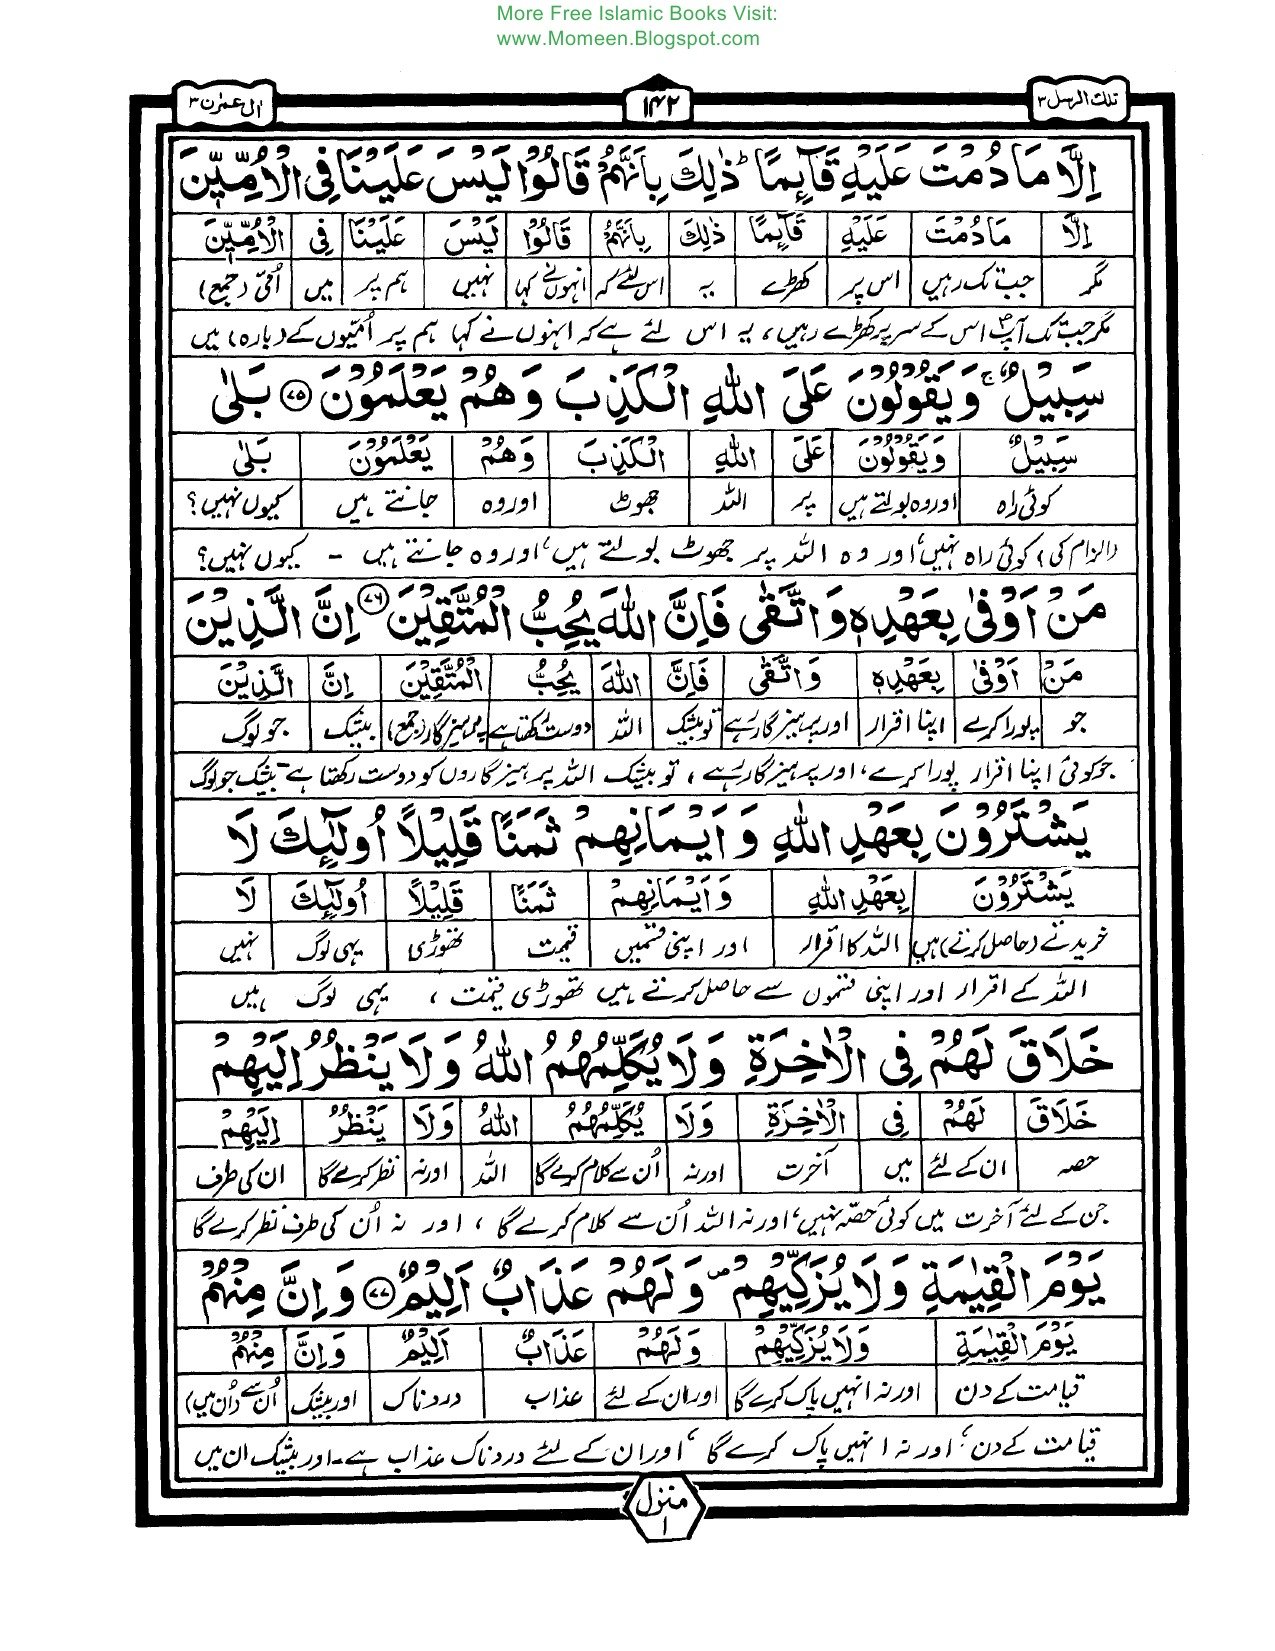 More Free Islamic Books Visit:
www.Momeen.Blogspot.com
تلك الرسل ۳
۱۴۲
اٰل عمرٰن ۳
اِلَّا مَا دُمْتَ عَلَيْهِ قَآئِمًا ؕ ذٰلِكَ بِاَنَّهُمْ قَالُوْا لَيْسَ عَلَيْنَا فِى الْاُمِّيّٖنَ
اِلَّا مَا دُمْتَ عَلَيْهِ قَآئِمًا ذٰلِكَ بِاَنَّهُمْ قَالُوْا لَيْسَ عَلَيْنَا فِى الْاُمِّيّٖنَ
مگر جب تک رہیں اس پر کھڑے یہ اس لئے کہ انہوں نے کہا نہیں ہم پر میں اُمّی (جمع)
مگر جب تک آپؐ اس کے سر پر کھڑے رہیں، یہ اس لئے ہے کہ انہوں نے کہا ہم پر اُمّیوں کے (بارہ) میں
سَبِيْلٌ ۚ وَيَقُوْلُوْنَ عَلَى اللّٰهِ الْكَذِبَ وَهُمْ يَعْلَمُوْنَ ۷۵ بَلٰى
سَبِيْلٌ وَيَقُوْلُوْنَ عَلَى اللّٰهِ الْكَذِبَ وَهُمْ يَعْلَمُوْنَ بَلٰى
کوئی راہ اور وہ بولتے ہیں پر اللہ جھوٹ اور وہ جانتے ہیں کیوں نہیں؟
(الزام کی) کوئی راہ نہیں، اور وہ اللہ پر جھوٹ بولتے ہیں، اور وہ جانتے ہیں - کیوں نہیں؟
مَنْ اَوْفٰى بِعَهْدِهٖ وَاتَّقٰى فَاِنَّ اللّٰهَ يُحِبُّ الْمُتَّقِيْنَ ۷۶ اِنَّ الَّذِيْنَ
مَنْ اَوْفٰى بِعَهْدِهٖ وَاتَّقٰى فَاِنَّ اللّٰهَ يُحِبُّ الْمُتَّقِيْنَ اِنَّ الَّذِيْنَ
جو پورا کرے اپنا اقرار اور پرہیزگار رہے تو بیشک اللہ دوست رکھتا ہے پرہیزگار (جمع) بیشک جو لوگ
جو کوئی اپنا اقرار پورا کرے، اور پرہیزگار رہے، تو بیشک اللہ پرہیزگاروں کو دوست رکھتا ہے- بیشک جو لوگ
يَشْتَرُوْنَ بِعَهْدِ اللّٰهِ وَاَيْمَانِهِمْ ثَمَنًا قَلِيْلًا اُولٰٓئِكَ لَا
يَشْتَرُوْنَ بِعَهْدِ اللّٰهِ وَاَيْمَانِهِمْ ثَمَنًا قَلِيْلًا اُولٰٓئِكَ لَا
خریدتے (حاصل کرتے) ہیں اللہ کا اقرار اور اپنی قسمیں قیمت تھوڑی یہی لوگ نہیں
اللہ کے اقرار اور اپنی قسموں سے حاصل کرتے ہیں تھوڑی قیمت، یہی لوگ ہیں
خَلَاقَ لَهُمْ فِى الْاٰخِرَةِ وَلَا يُكَلِّمُهُمُ اللّٰهُ وَلَا يَنْظُرُ اِلَيْهِمْ
خَلَاقَ لَهُمْ فِى الْاٰخِرَةِ وَلَا يُكَلِّمُهُمُ اللّٰهُ وَلَا يَنْظُرُ اِلَيْهِمْ
حصہ ان کے لئے میں آخرت اور نہ اُن سے کلام کرے گا اللہ اور نہ نظر کرے گا ان کی طرف
جن کے لئے آخرت میں کوئی حصّہ نہیں، اور نہ اللہ اُن سے کلام کرے گا، اور نہ اُن کی طرف نظر کرے گا
يَوْمَ الْقِيٰمَةِ وَلَا يُزَكِّيْهِمْ ۪ وَلَهُمْ عَذَابٌ اَلِيْمٌ ۷۷ وَاِنَّ مِنْهُمْ
يَوْمَ الْقِيٰمَةِ وَلَا يُزَكِّيْهِمْ وَلَهُمْ عَذَابٌ اَلِيْمٌ وَاِنَّ مِنْهُمْ
قیامت کے دن اور نہ انہیں پاک کرے گا اور ان کے لئے عذاب دردناک اور بیشک اُن سے (اُن میں)
قیامت کے دن، اور نہ انہیں پاک کرے گا، اور ان کے لئے دردناک عذاب ہے- اور بیشک ان میں
منزل
۱